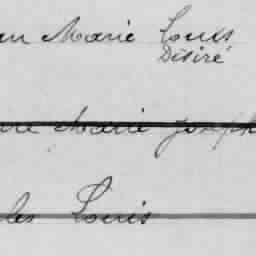 Marie Louis
Désiré
Marie Joseph
les Louis